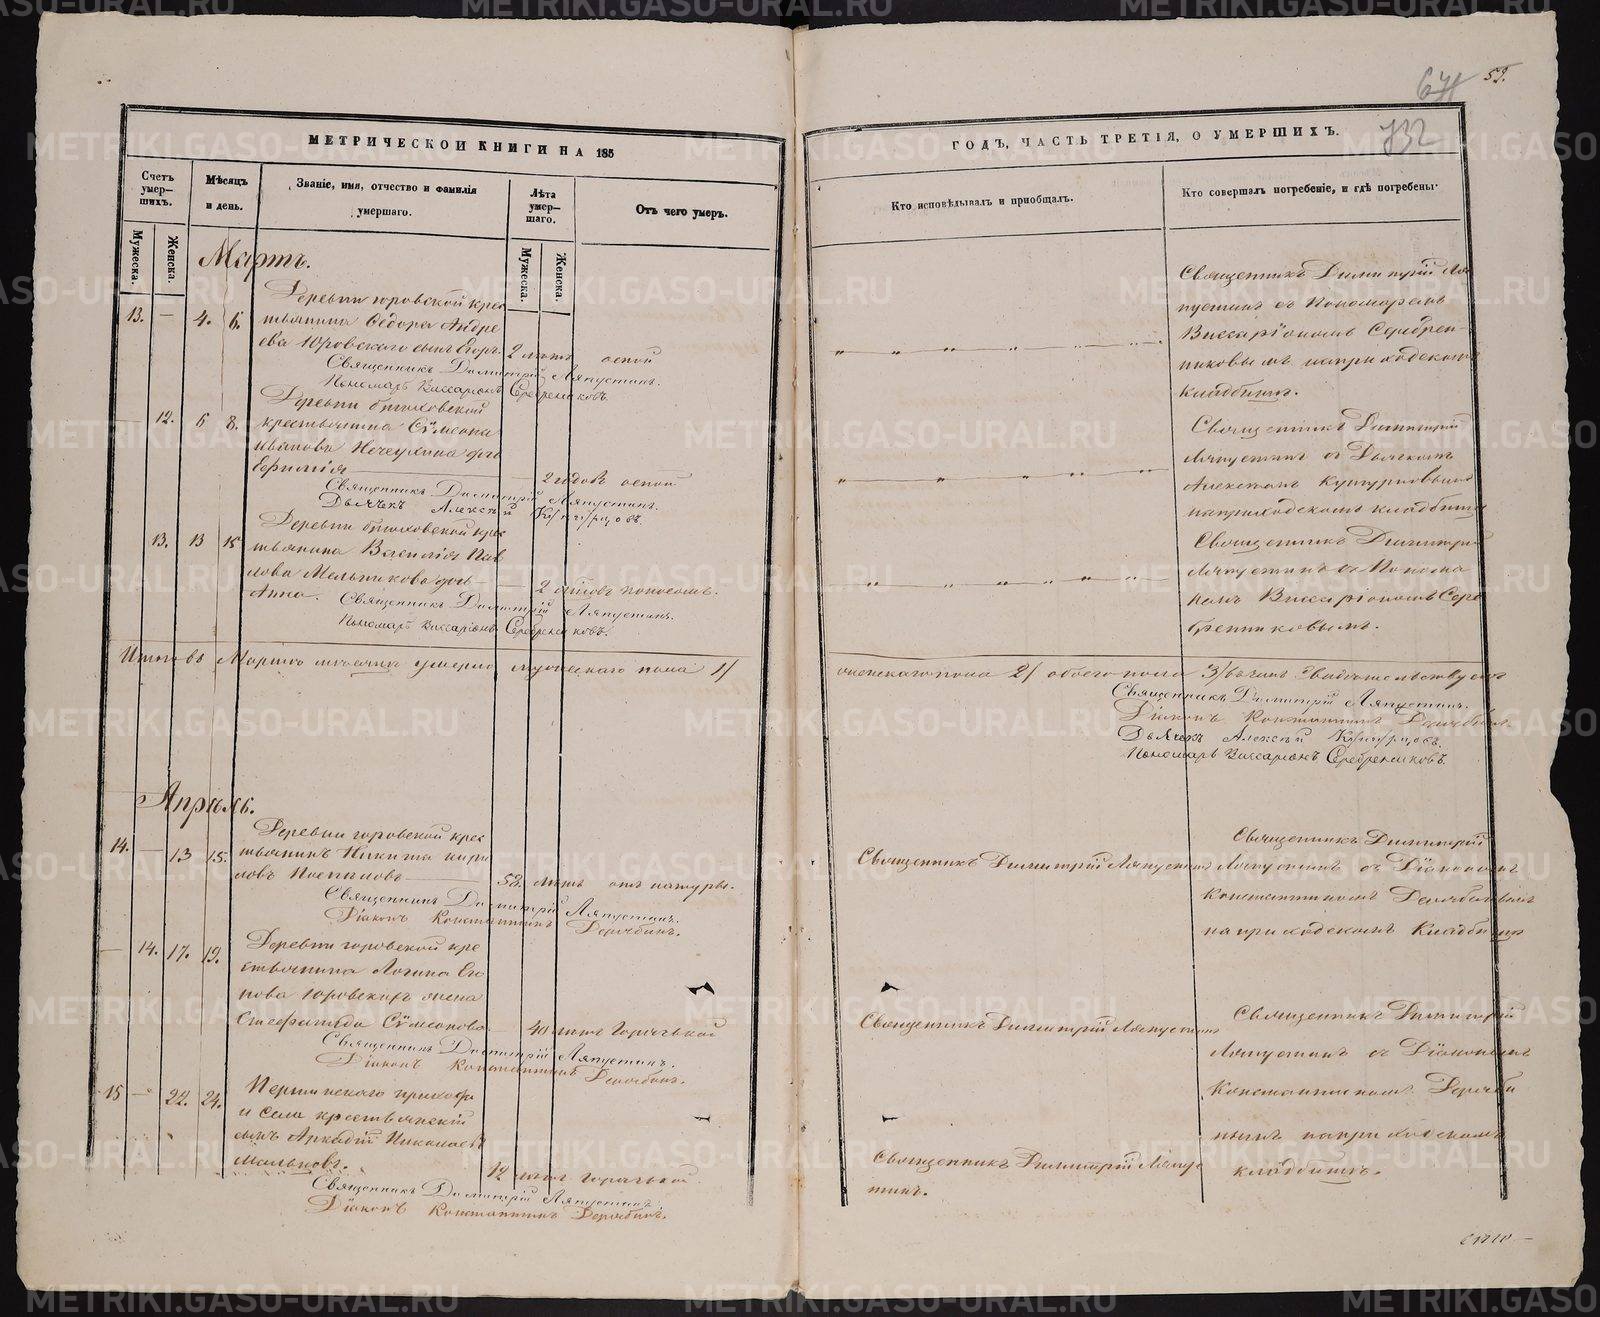 59.
732
МЕТРИЧЕСКОЙ КНИГИ НА 185
ГОДЪ, ЧАСТЬ ТРЕТІЯ, О УМЕРШИХЪ.
Счетъ умер—шихъ.
Мужеска.
Женска.
Мѣсяцъ и день.
Званіе, имя, отчество и фамилія умершаго.
Лѣта умер—шаго.
Мужеска.
Женска.
Отъ чего умеръ.
Кто исповѣдывалъ и пріобщалъ.
Кто совершалъ погребеніе, и гдѣ погребены.
Мартъ.
13. — 4. 6.
Деревни юровской крес
тьянина Ѳедора Андре
ева Юровскаго сынъ Егоръ. 2 лѣтъ оспой
Священникъ Димитрій Ляпустинъ.
Пономарь Виссаріонъ Серебрениковъ.
Священникъ Димитрій Ля
пустинъ съ Пономаремъ
Виссаріономъ Серебрен-
никовымъ на приходскомъ
кладбищѣ.
— 12. 6 8.
Деревни
крестьянина Сѵмеона
Иванова дочь
2 годовъ оспой
Священникъ Димитрій Ляпустинъ.
Дьячекъ Алексѣй
Священникъ Димитрій
Ляпустинъ съ Дьячкомъ
Алексѣемъ
на приходскомъ кладбищѣ
13. 13 15
Деревни крес
тьянина Василія Пав
лова Мельникова дочь
Анна. 2 годовъ поносомъ.
Священникъ Димитрій Ляпустинъ.
Пономарь Виссаріонъ Серебрениковъ.
Священникъ Димитрій
Ляпустинъ съ Понома
ремъ Виссаріономъ Сере
брениковымъ.
Итого въ Мартѣ мѣсяцѣ умерло мужескаго пола 1/
женскаго пола 2/ обоего пола 3/ въ чемъ свидѣтельствуемъ
Священникъ Димитрій Ляпустинъ.
Діаконъ Константинъ
Дьячекъ Алексѣй
Пономарь Виссаріонъ Серебрениковъ.
Апрѣль.
14. — 13 15.
Деревни юровской крес
тьянинъ Никита Кири
ловъ Поспѣловъ 58. лѣтъ отъ натуры.
Священникъ Димитрій Ляпустинъ.
Діаконъ Константинъ
Священникъ Димитрій Ляпустинъ
Священникъ Димитрій
Ляпустинъ съ Діакономъ
Константиномъ
на приходскомъ кладбищѣ
— 14. 17. 19.
Деревни юровской кре
стьянина Логина
Юровскихъ жена
Стефанида Сѵмеонова 40 лѣтъ горячкой
Священникъ Димитрій Ляпустинъ.
Діаконъ Константинъ
Священникъ Димитрій Ляпустинъ
Священникъ Димитрій
Ляпустинъ съ Діакономъ
Константиномъ
на приходскомъ
кладбищѣ.
15 — 22. 24.
прихода
и села крестьянскій
сынъ Аркадій Николаевъ
Мальцовъ. 12 лѣтъ горячкой
Священникъ Димитрій Ляпустинъ
Діаконъ Константинъ
Священникъ Димитрій Ляпус
тинъ.
METRIKI.GASO-URAL.RU